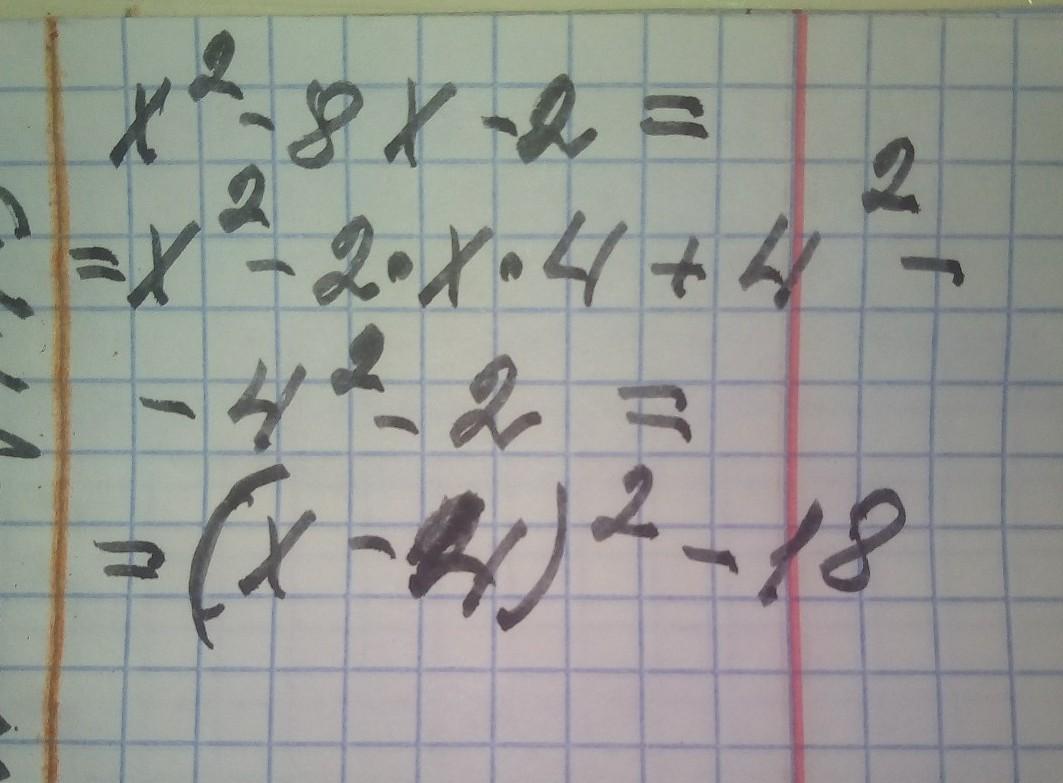 x² - 8x - 2 =
= x² - 2·x·4 + 4² -
- 4² - 2 =
= (x - 4)² - 18